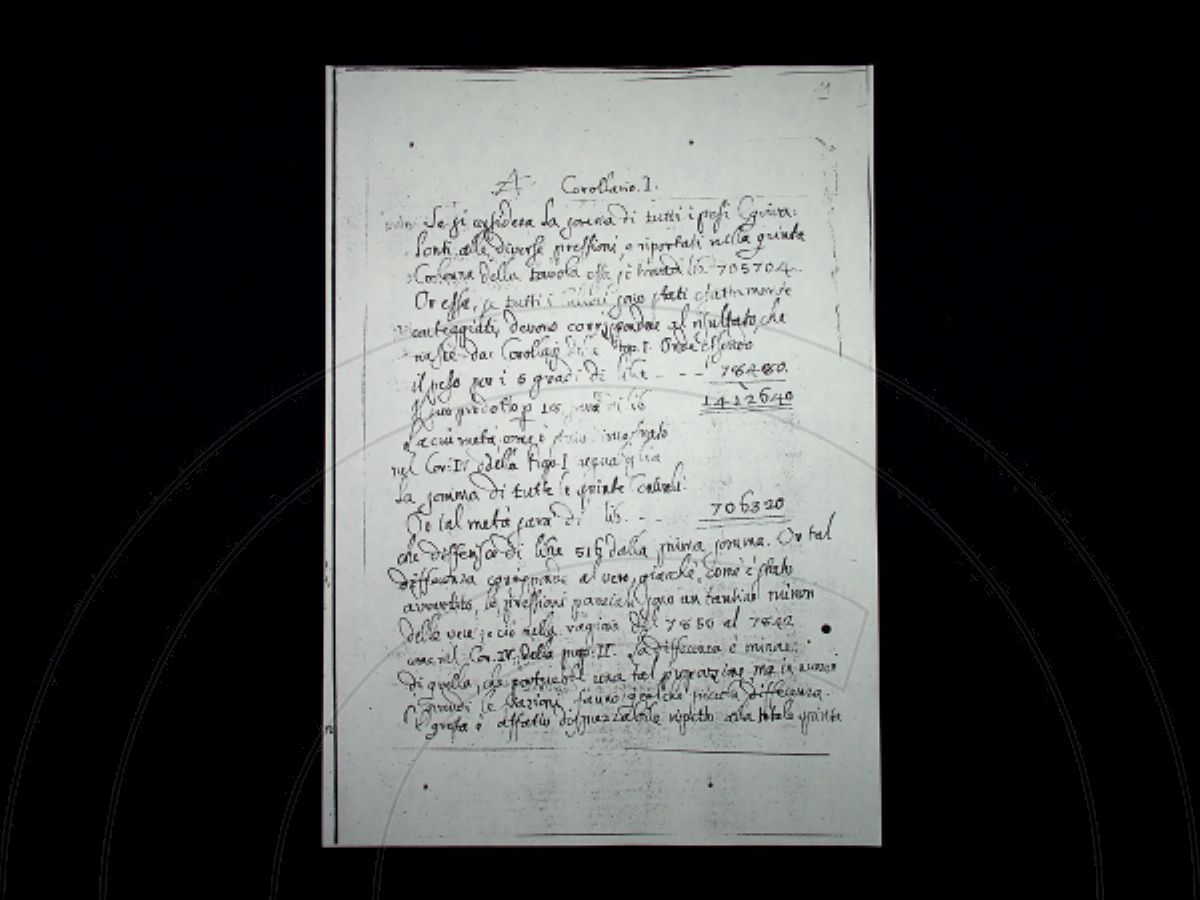 A Corollario. I.
Se si considera la somma di tutti i pesi Equiva:
lenti alle diverse pressioni, e riportati nella quinta
Colonna della tavola esse si trovera lib. 705704.
Or esse, se tutti i sono stati esattamente
conteggiati, devono corrispondere al risultato, che
nasce dai Corollarj prop. I. Onde essendo
il peso per i 5 gradi di libre - - - 78480.
Il suo prodotto p 18 sarà di lib 1412640
la cui metà come è stato mostrato
nel Cor: IV della Prop. I
la somma di tutte le spinte
Or tal metà sara di lib. - - 706320
che differisce di libre 516 dalla prima somma. Or tal
differenza corrisponde al vero, giacchè, come è stato
avvertito, le pressioni parziali sono un tantino minori
delle vere, e ciò nella ragione del 7850 al 7842
come nel Cor. IV. della prop. II. La differenza è minore
di quella, che porterebbe una tal proporzione, ma in numeri
grandi le frazioni fanno qualche piccola differenza.
E questa è affatto disprezzabile rispetto alla totale spinta